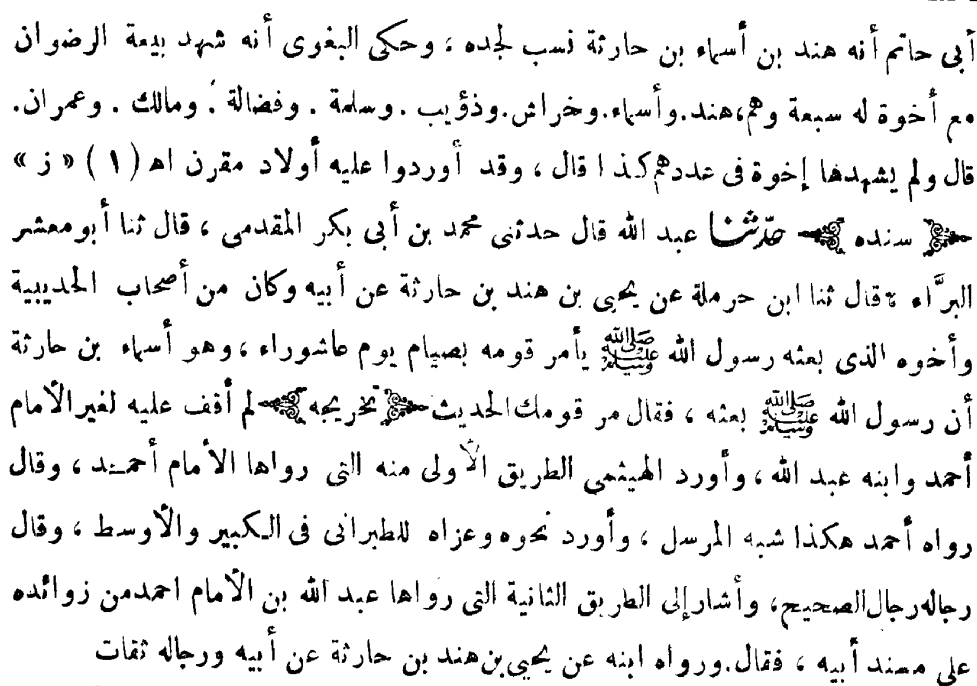 أبى حاتم أنه هند بن أسماء بن حارثة نسب لجده ، وحكى البغوى أنه شهد بيعة الرضوان
مع أخوة له سبعة وهم،هند.وأسماء.وخراش.وذؤيب .وسلمة . وفضالة . ومالك . وعمران.
قال ولم يشهدها إخوة فى عددهم كذا قال ، وقد أوردوا عليه أولاد مقرن اه (١) « ز »
﴿ سنده ﴾ حدّثنا عبد الله قال حدثنى محمد بن أبى بكر المقدمى ، قال ثنا أبو معشر
البرَّاء قال ثنا ابن حرملة عن يحيى بن هند بن حارثة عن أبيه وكان من أصحاب الحديبية
وأخوه الذى بعثه رسول الله ﷺ يأمر قومه بصيام يوم عاشوراء ، وهو أسماء بن حارثة
أن رسول الله ﷺ بعثه ، فقال مر قومك الحديث ﴿ تخريجه ﴾ لم أقف عليه لغير الأمام
أحمد وابنه عبد الله ، وأورد الهيثمى الطريق الأولى منه التى رواها الأمام أحمد ، وقال
رواه أحمد هكذا شبه المرسل ، وأورد نحوه وعزاه للطبرانى فى الكبير والأوسط ، وقال
رجاله رجال الصحيح، وأشار إلى الطريق الثانية التى رواها عبد الله بن الأمام احمد من زوائده
على مسند أبيه ، فقال.ورواه ابنه عن يحيى بن هند بن حارثة عن أبيه ورجاله ثقات